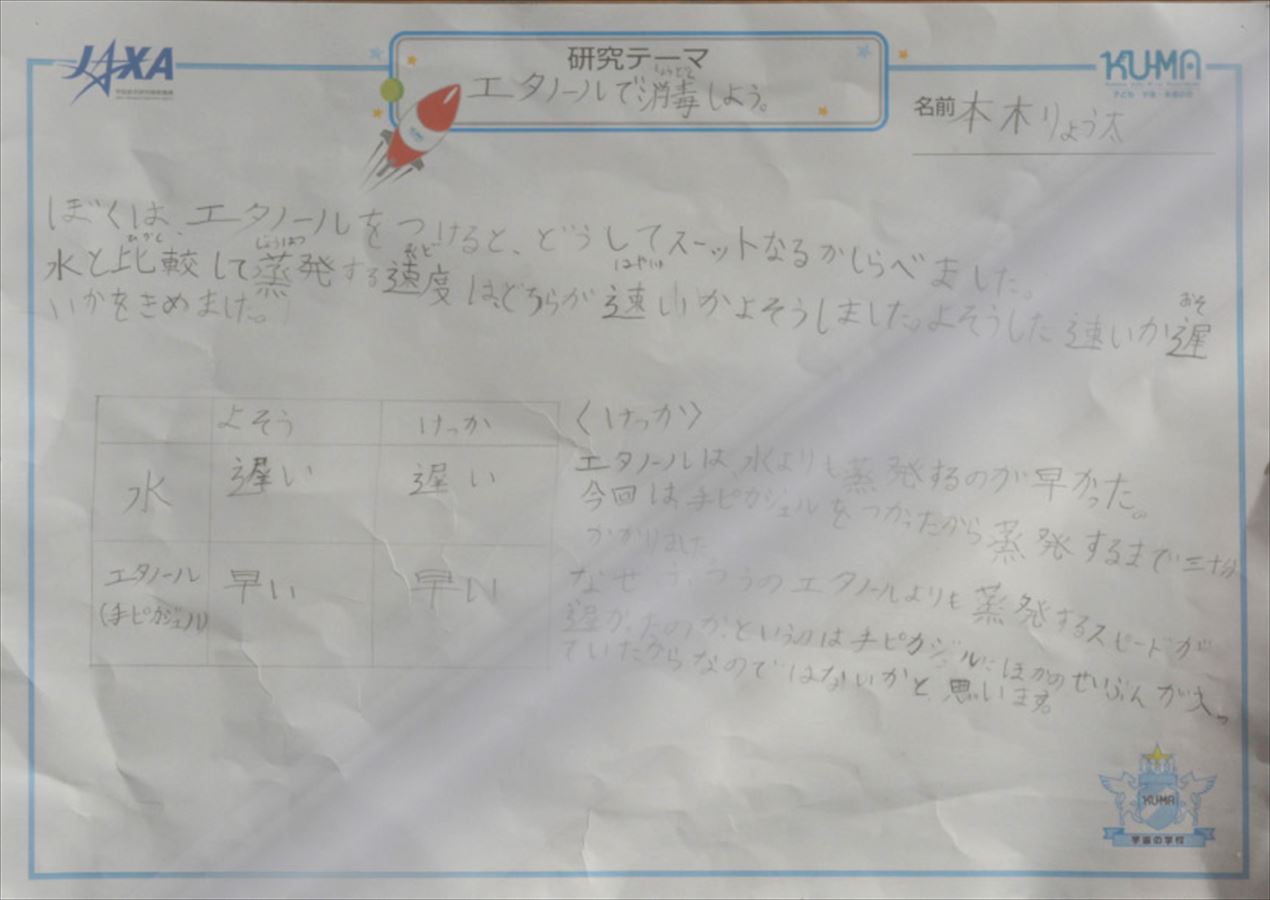 JAXA
研究テーマ
エタノールで消毒しよう。
しょうどく
KU-MA
子ども・宇宙・未来の会
名前 本木りょう太
ぼくは、エタノールをつけると、どうしてスーットなるかしらべました。
ひかく じょうはつ そくど はやい
水と比較して蒸発する速度は、どちらが速いかよそうしました。よそうした速いか遅
おそ
いかをきめました。
よそう けっか
水 遅い 遅い
エタノール(手ピカジェル) 早い 早い
〈けっか〉
エタノールは、水よりも蒸発するのが早かった。
今回は、手ピカジェルをつかったから蒸発するまで三十分
かかりました。
なぜ、ふつうのエタノールよりも蒸発するスピードが
遅かったのか、というのは手ピカジルにほかのせいぶんが入っ
ていたからなのではないかと思います。
KU-MA
宇宙の学校